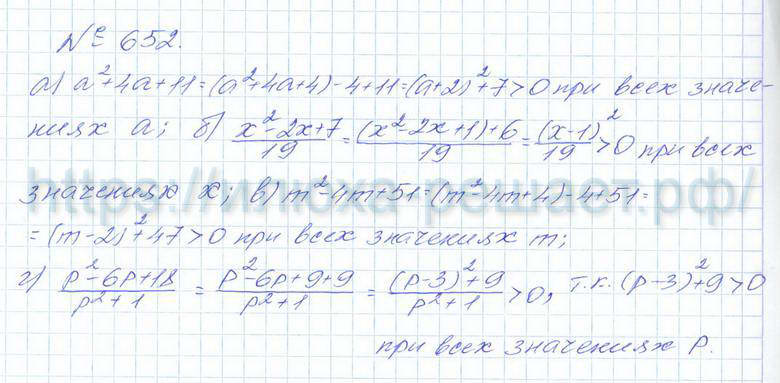 № 652.
а) a²+4a+11=(a²+4a+4)-4+11=(a+2)²+7>0 при всех значе-
ниях a; б) (x²-2x+7)/19=((x²-2x+1)+6)/19=(x-1)²/19>0 при всех
значениях x; в) m²-4m+51=(m²-4m+4)-4+51=
=(m-2)²+47>0 при всех значениях m;
г) (p²-6p+18)/(p²+1) = (p²-6p+9+9)/(p²+1) = ((p-3)²+9)/(p²+1) >0, т.к. (p-3)²+9>0
при всех значениях p.
https://илюха-решает.рф/